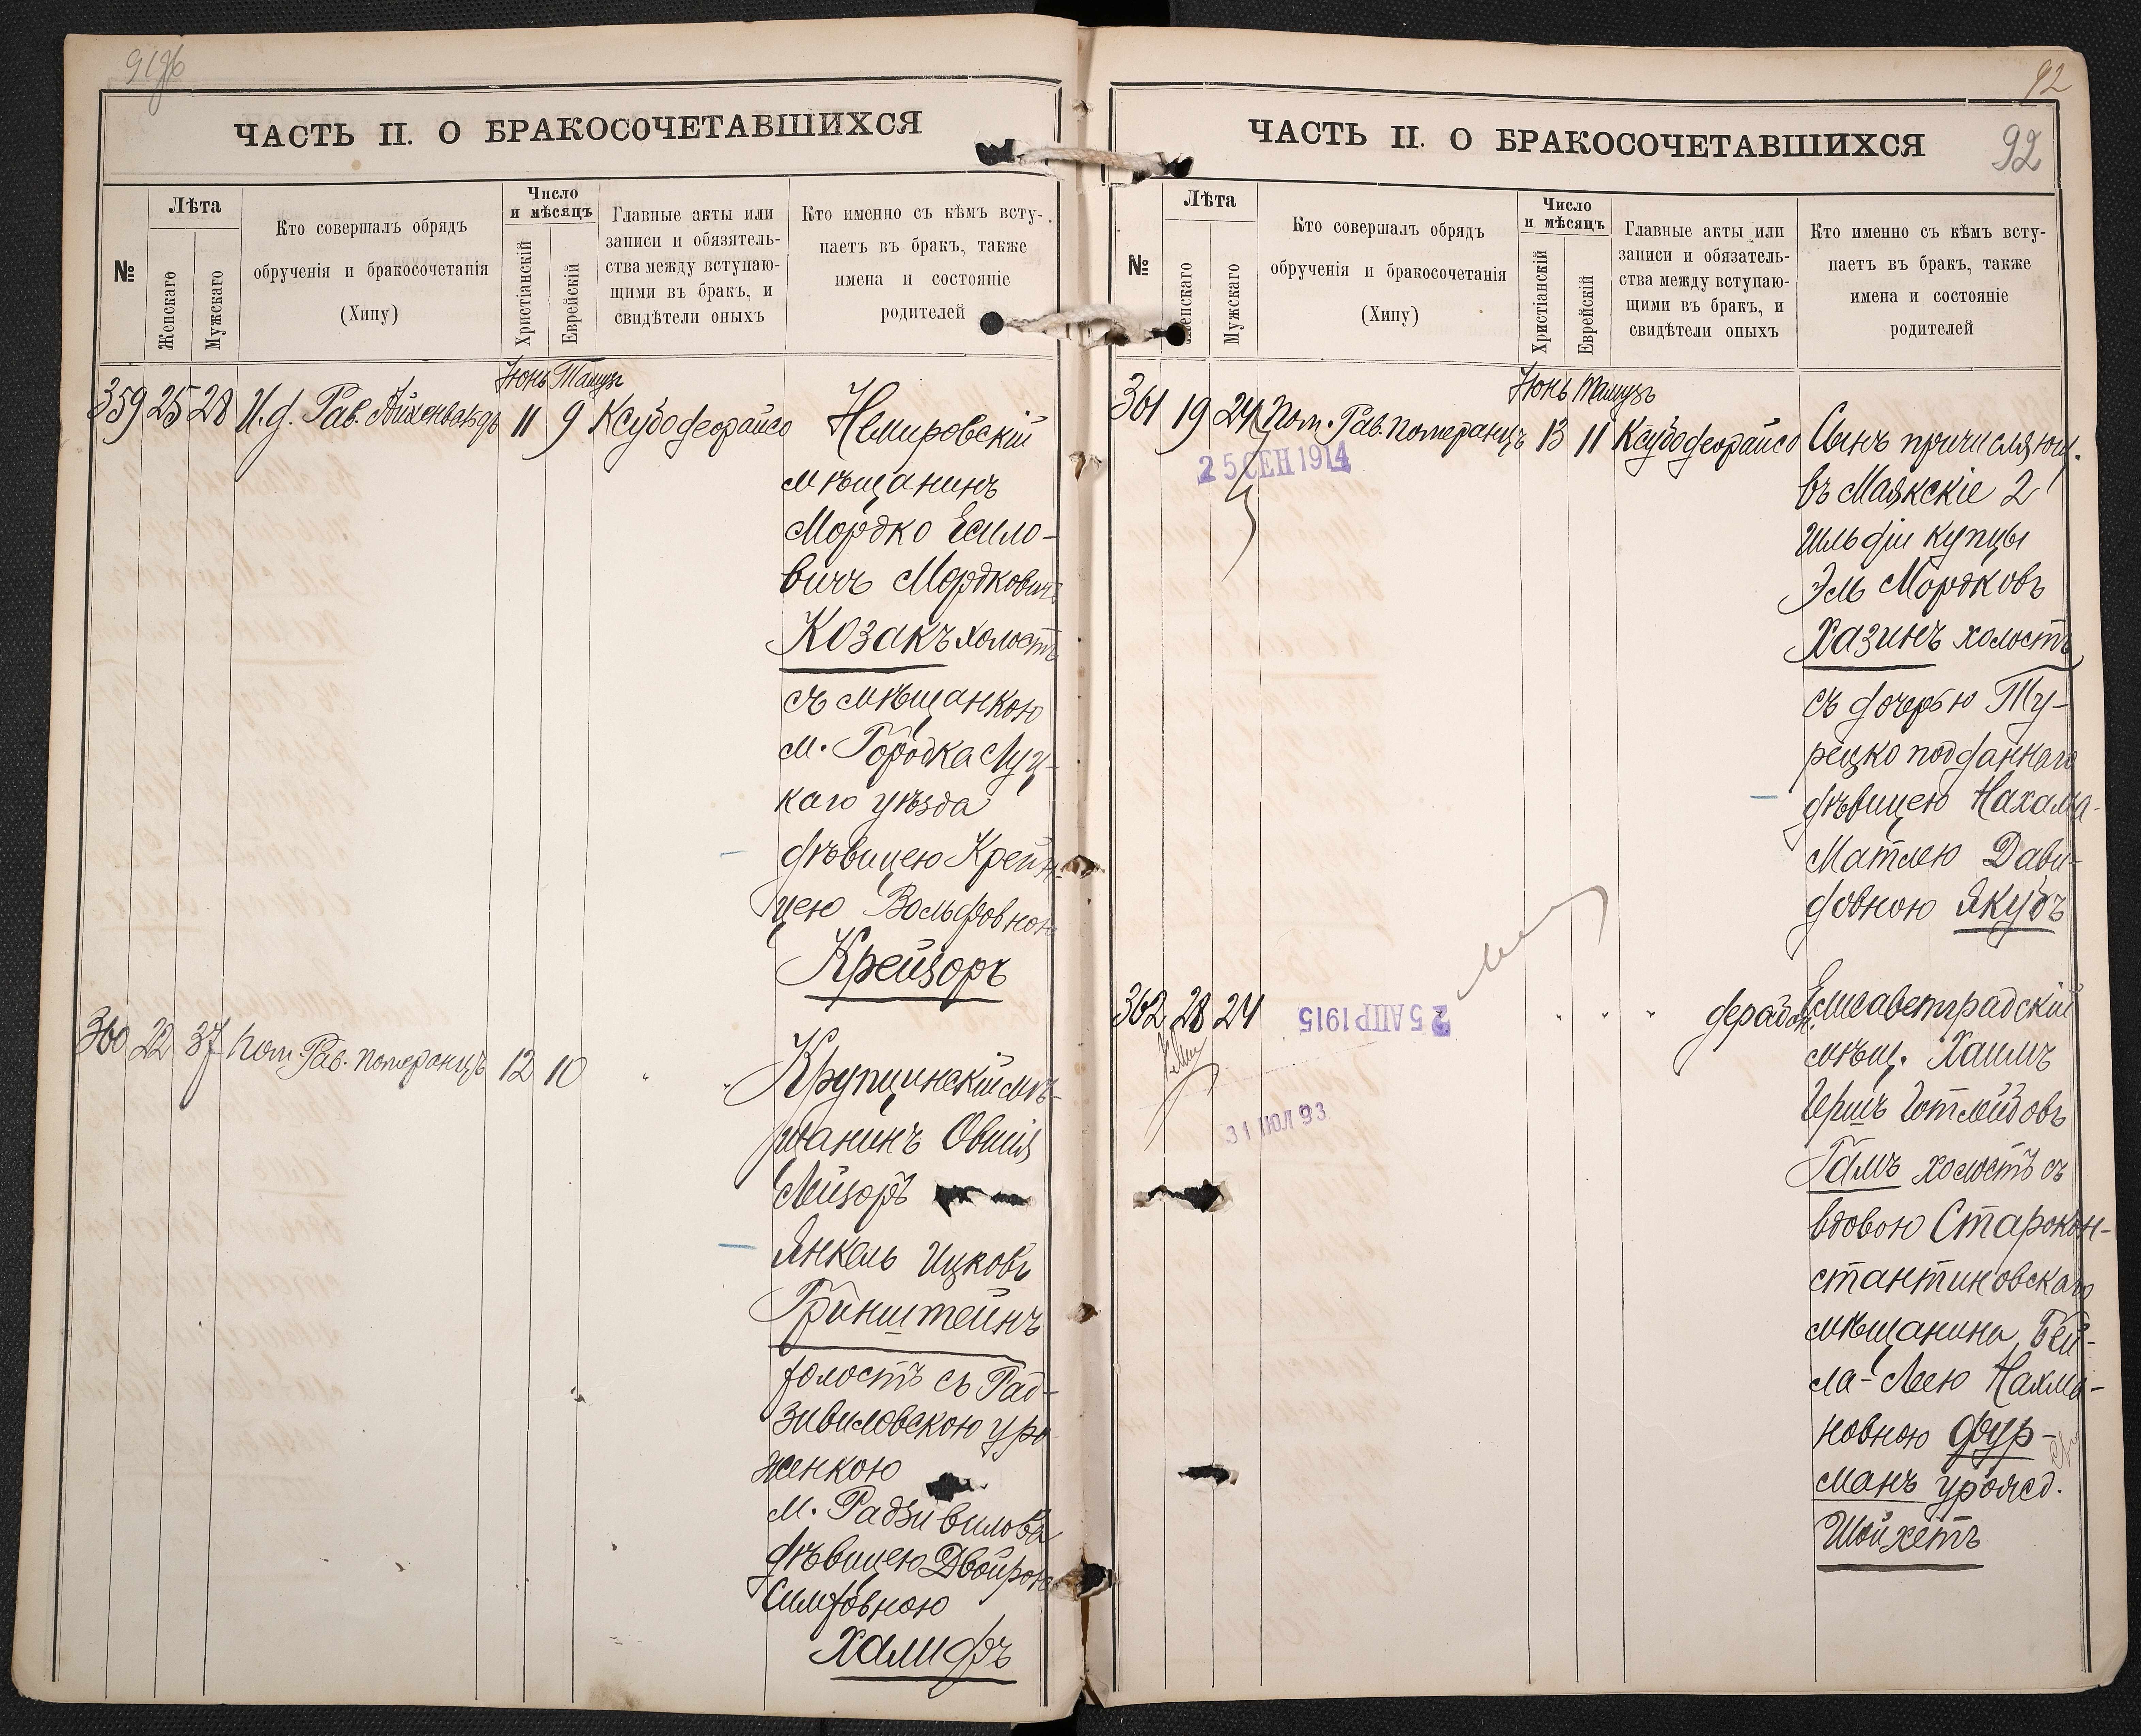 92
ЧАСТЬ II. О БРАКОСОЧЕТАВШИХСЯ
№
Лѣта
Женскаго
Мужскаго
Кто совершалъ обрядъ
обрученія и бракосочетанія
(Хипу)
Число
и мѣсяцъ
Христіанскій
Еврейскій
Главные акты или
записи и обязатель-
ства между вступаю-
щими въ бракъ, и
свидѣтели оныхъ
Кто именно съ кѣмъ всту-
паетъ въ бракъ, также
имена и состояніе
родителей
Іюнь Тамузъ
359 25 28 И.д. Рав. Айхенвальдъ 11 9 Ксубо деорайсо Немировскій
мѣщанинъ
Мордко Есило-
вичъ Мордковичъ
Козакъ холостъ
съ мѣщанкою
м. Городка Луц-
каго уѣзда
дѣвицею Крейн-
цею Вольфовною
Крейзоръ
360 22 37 Пом. Рав. Померанцъ 12 10 " " Крупчинскій мѣ-
щанинъ Овшія
Лейзоръ
Янкель Ицковъ
Гринштейнъ
холостъ съ Рад-
зивиловскою уро
женкою
м. Радзивилова
дѣвицею Двойрою
Симховною
Халифъ
92
ЧАСТЬ II. О БРАКОСОЧЕТАВШИХСЯ
92
№
Лѣта
Женскаго
Мужскаго
Кто совершалъ обрядъ
обрученія и бракосочетанія
(Хипу)
Число
и мѣсяцъ
Христіанскій
Еврейскій
Главные акты или
записи и обязатель-
ства между вступаю-
щими въ бракъ, и
свидѣтели оныхъ
Кто именно съ кѣмъ всту-
паетъ въ бракъ, также
имена и состояніе
родителей
Іюнь Тамузъ
361 19 24 Пом. Рав. Померанцъ 13 11 Ксубо деорайсо Сынъ причисляющ.
25 СЕН 1914
въ Маякскіе 2
гильдіи купцы
Эль Мордковъ
Хазинъ холостъ
съ дочерью Ту-
рецко подданнаго
дѣвицею Нахама-
Матлею Дави-
довною Якубъ
362 28 24 " " " дерабон. Елисаветградскій
25 АПР 1915
мѣщ. Хаимъ
Гершъ Готлейбовъ
31 ИЮЛ 93
Галъ холостъ съ
вдовою Старокон-
стантиновскаго
мѣщанина Бей-
ла-Леею Нахма-
новною Фур-
манъ урожд.
Шойхетъ